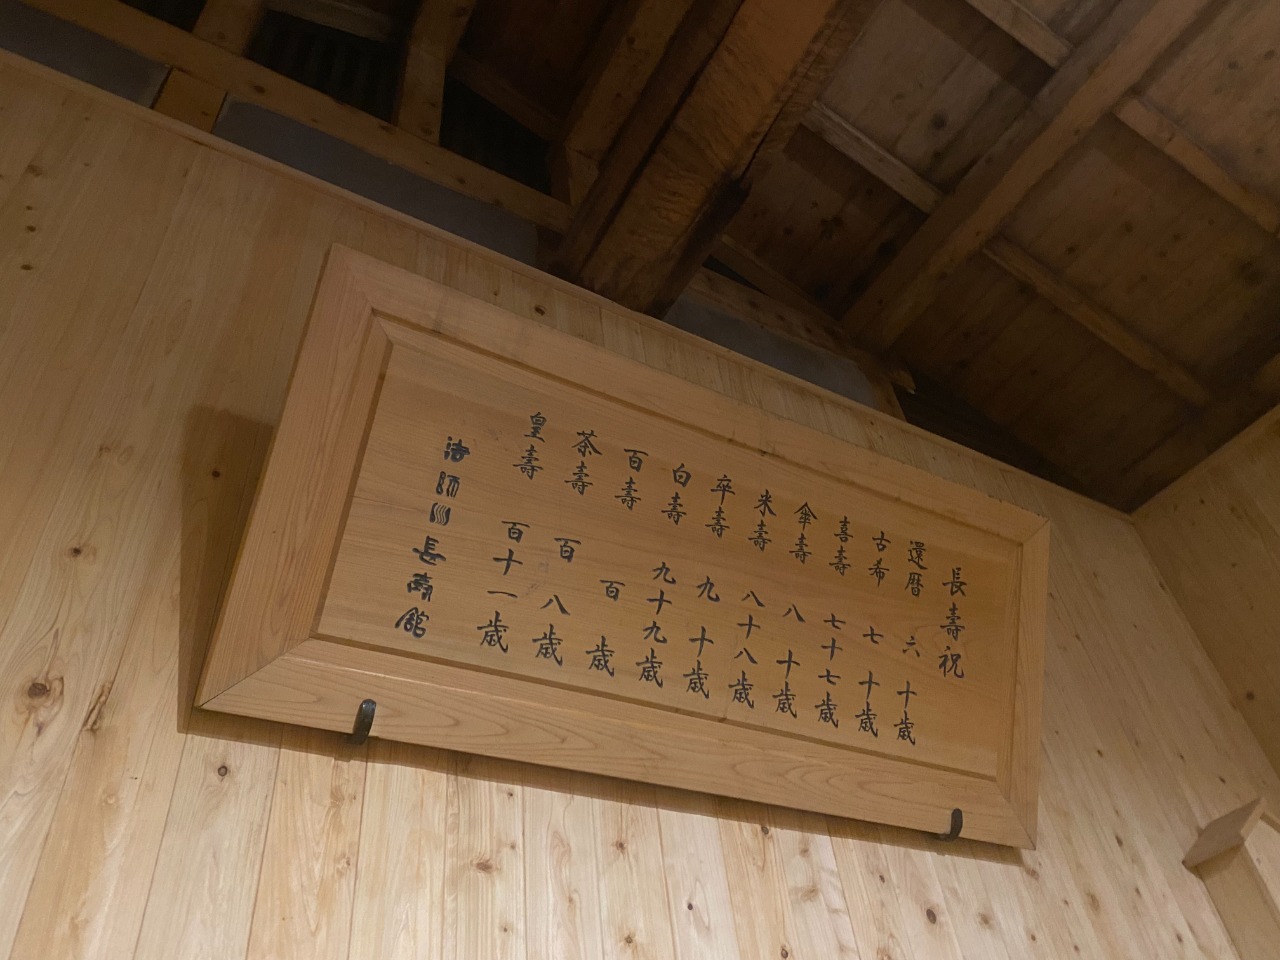 長壽祝
還暦 六十歳
古希 七十歳
喜壽 七十七歳
傘壽 八十歳
米壽 八十八歳
卒壽 九十歳
白壽 九十九歳
百壽 百歳
茶壽 百八歳
皇壽 百十一歳
法師川長壽館